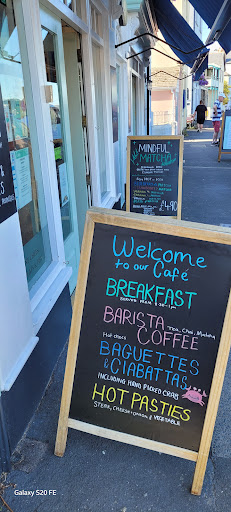 MINDFUL
MATCHA
£4.90
Welcome
to our Café
BREAKFAST
BARISTA Tea, Chai, Matcha
Hot chocs COFFEE
BAGUETTES
& CIABATTAS
INCLUDING HAND PICKED CRAB
HOT PASTIES
STEAK, CHEESE+ONION & VEGETABLE
Galaxy S20 FE